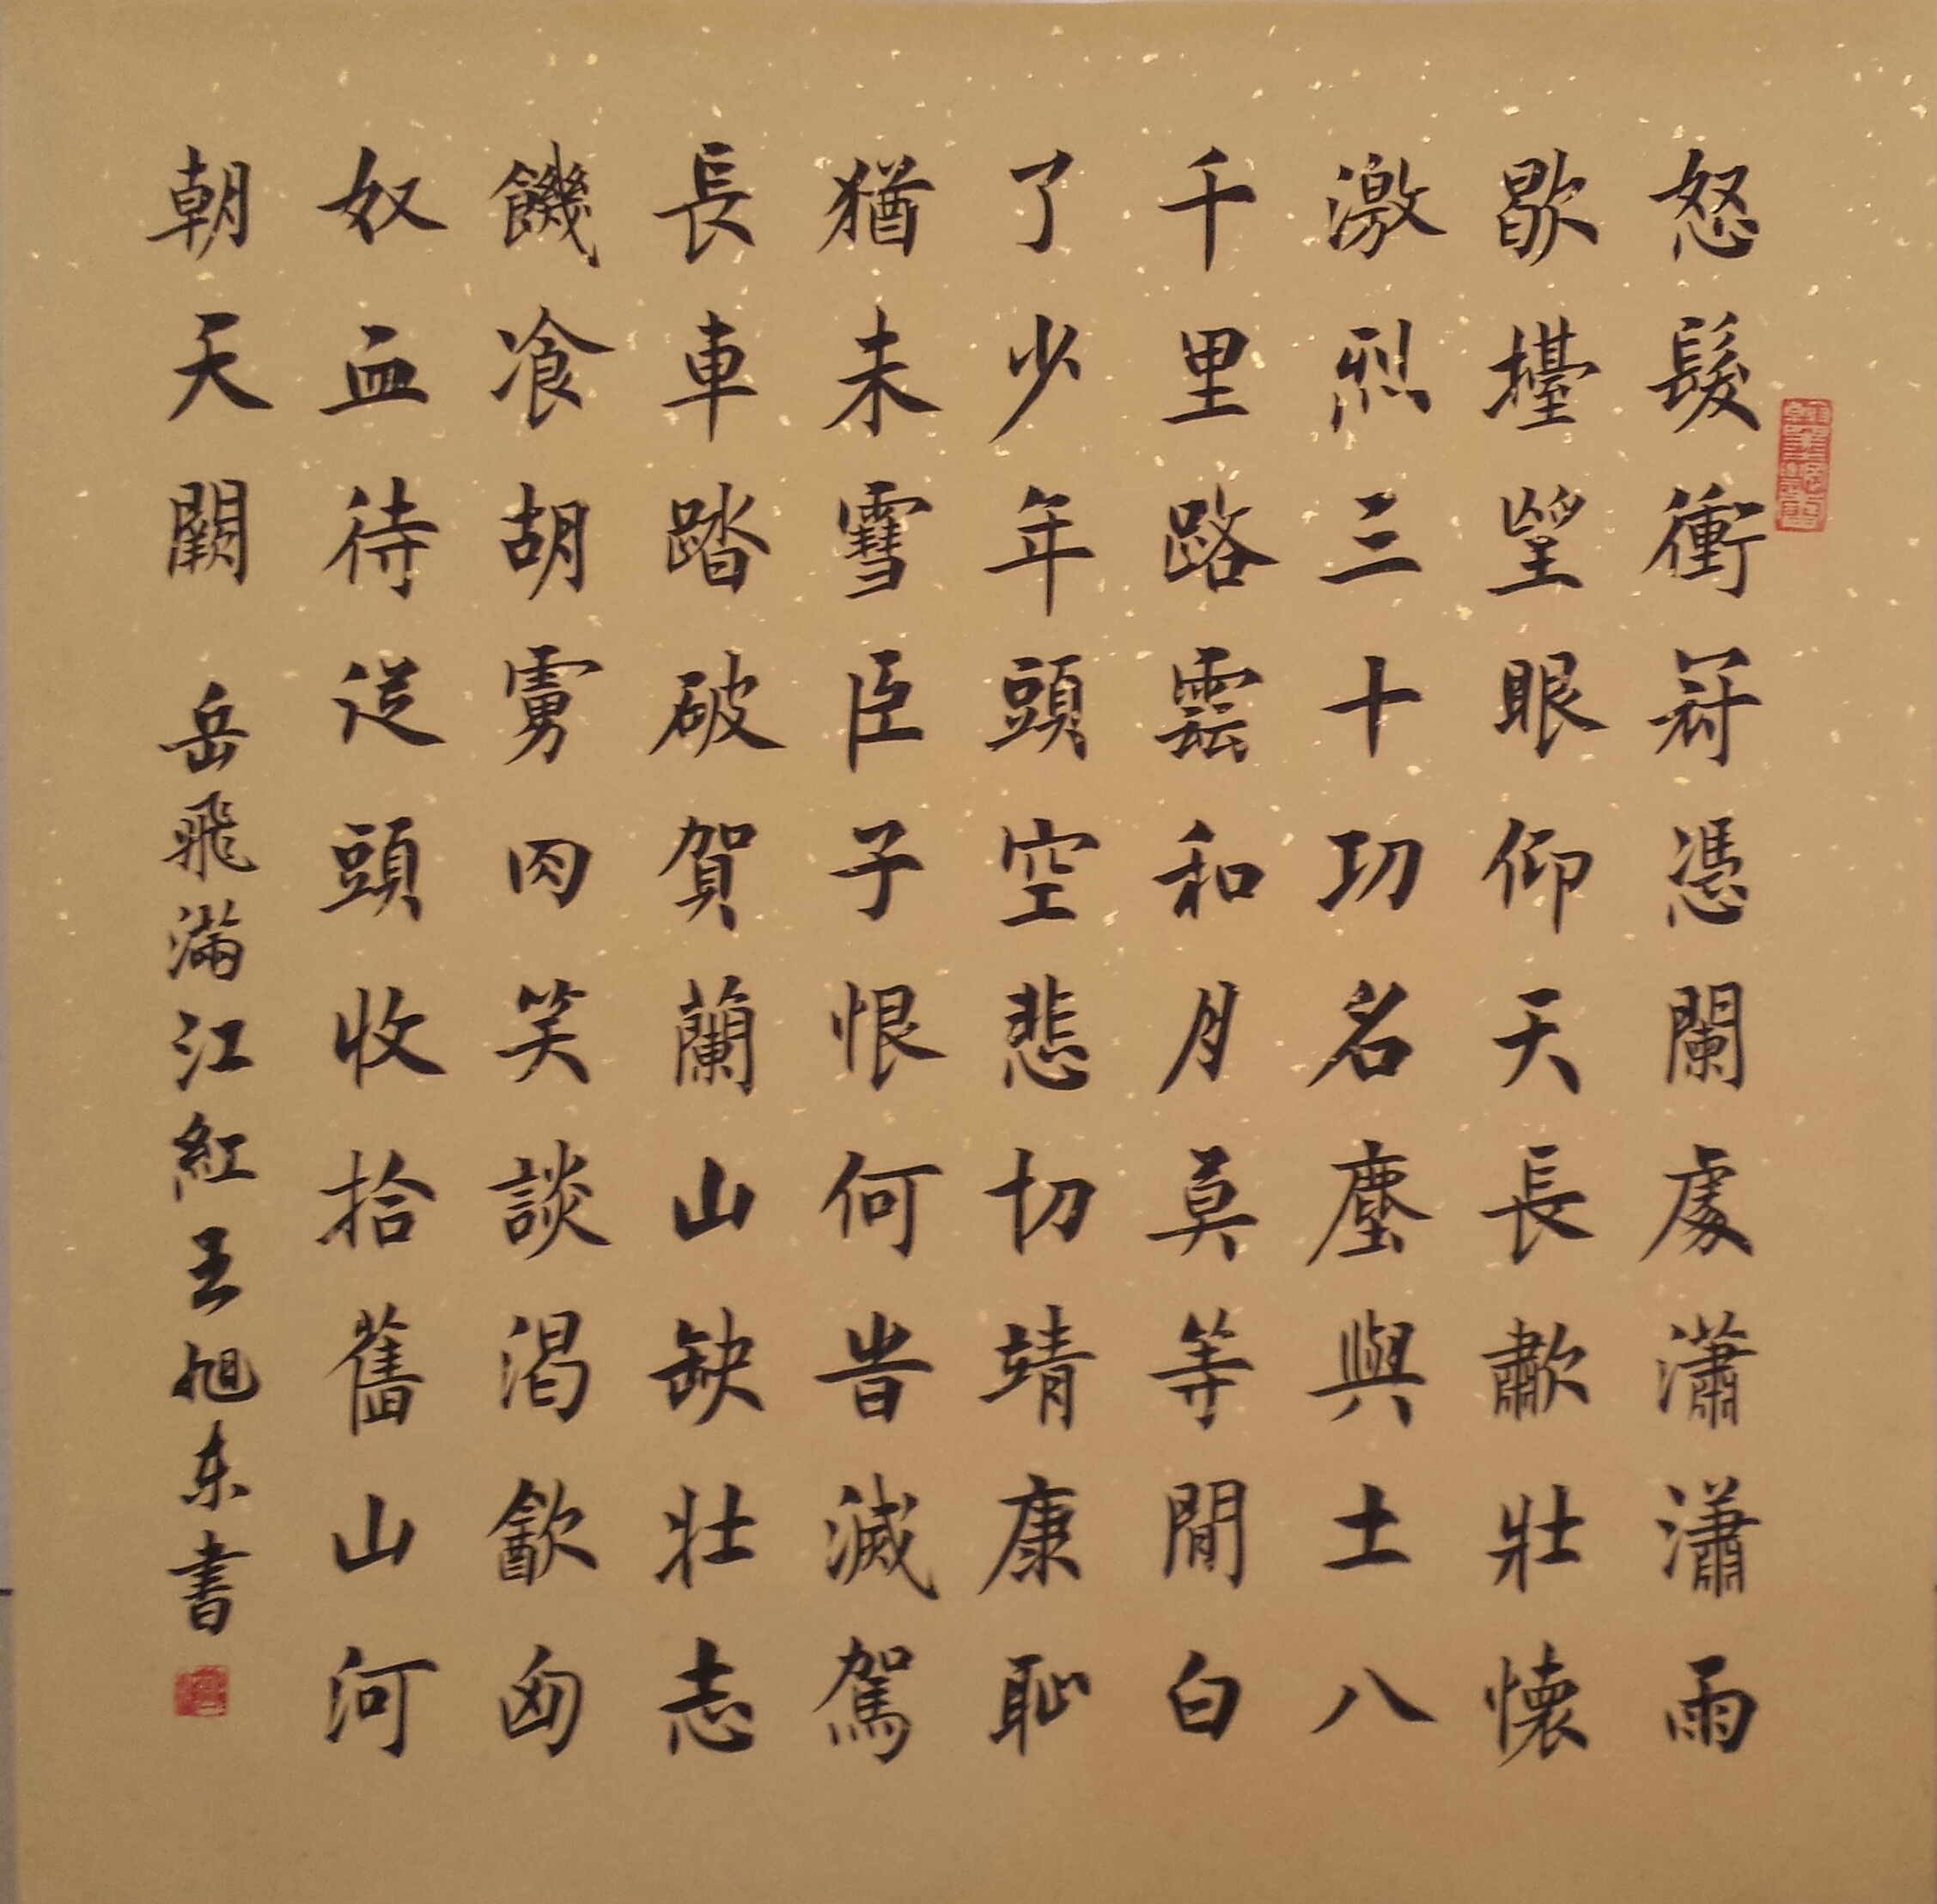 怒髮衝冠憑闌處瀟瀟雨
歇擡望眼仰天長歗壯懷
激烈三十功名塵與土八
千里路雲和月莫等閒白
了少年頭空悲切靖康恥
猶未雪臣子恨何時滅駕
長車踏破賀蘭山缺壯志
饑飡胡虜肉笑談渴飲匈
奴血待從頭收拾舊山河
朝天闕
岳飛滿江紅王旭东書